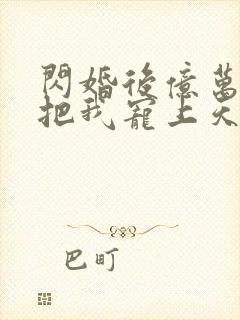 閃婚後億萬
把我寵上天
巴町